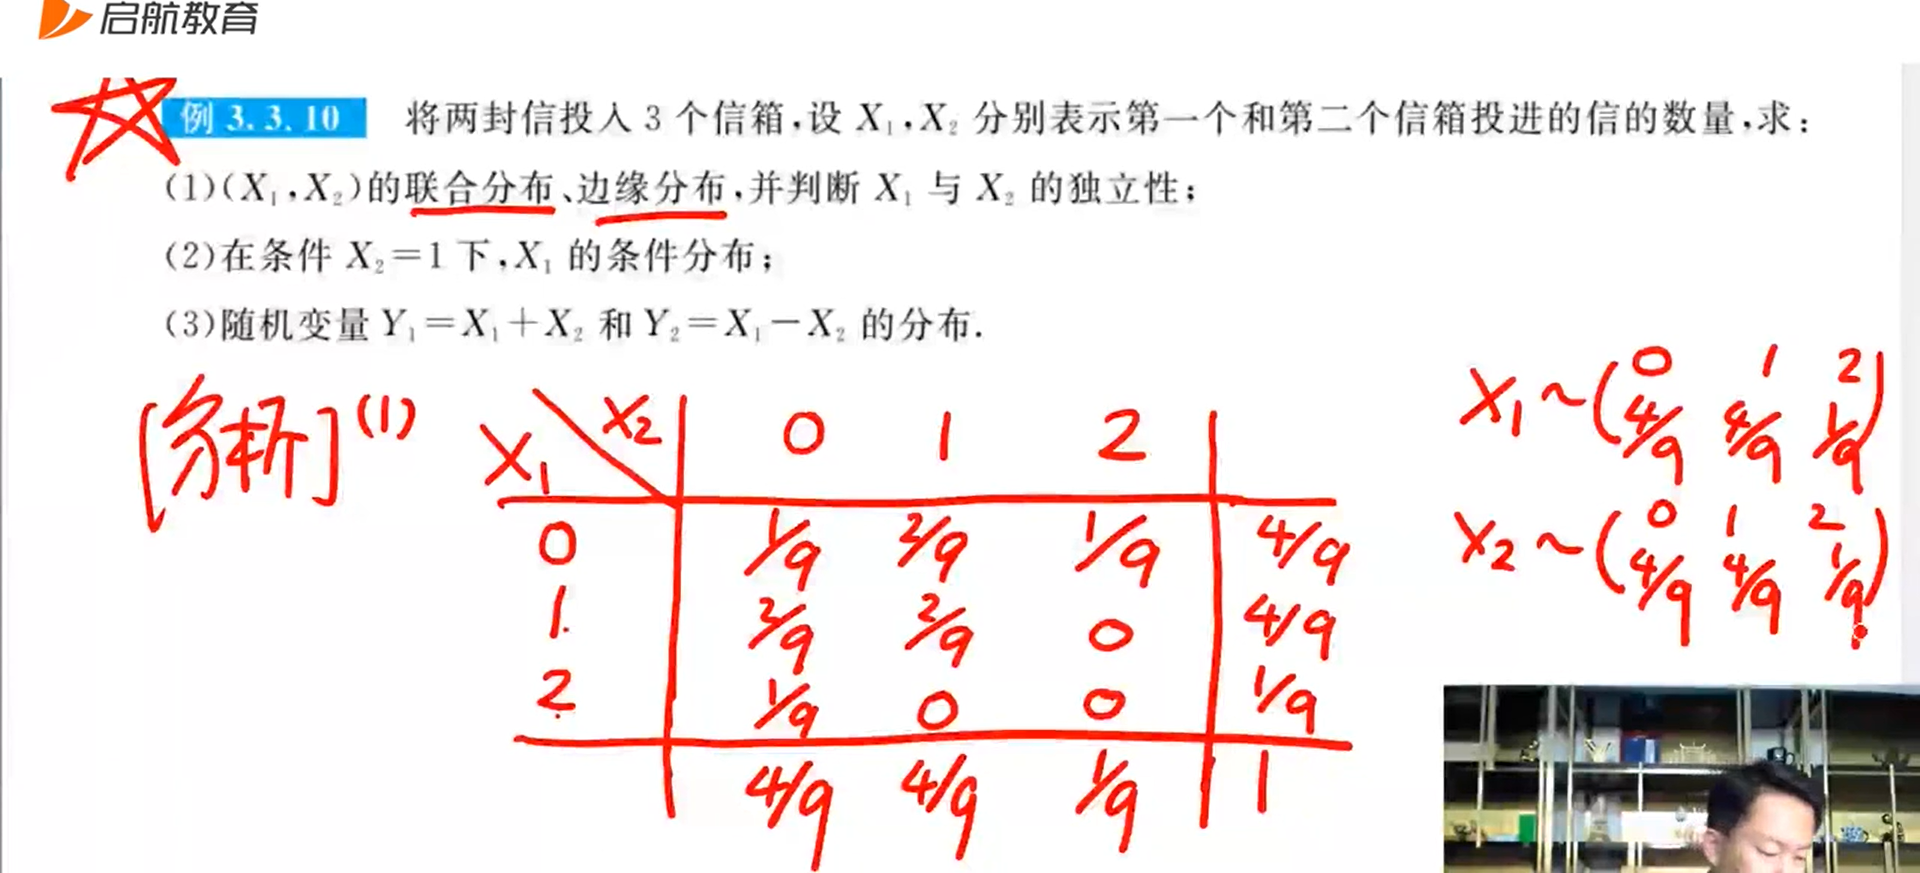 启航教育
例 3.3.10 将两封信投入 3 个信箱,设 X₁,X₂ 分别表示第一个和第二个信箱投进的信的数量,求:
(1)(X₁,X₂)的联合分布、边缘分布,并判断 X₁ 与 X₂ 的独立性;
(2)在条件 X₂=1 下,X₁ 的条件分布;
(3)随机变量 Y₁=X₁+X₂ 和 Y₂=X₁-X₂ 的分布.
[分析](1)
X₁ X₂ 0 1 2
0 1/9 2/9 1/9 4/9
1 2/9 2/9 0 4/9
2 1/9 0 0 1/9
4/9 4/9 1/9 1
X₁~(0 1 2
4/9 4/9 1/9)
X₂~(0 1 2
4/9 4/9 1/9)